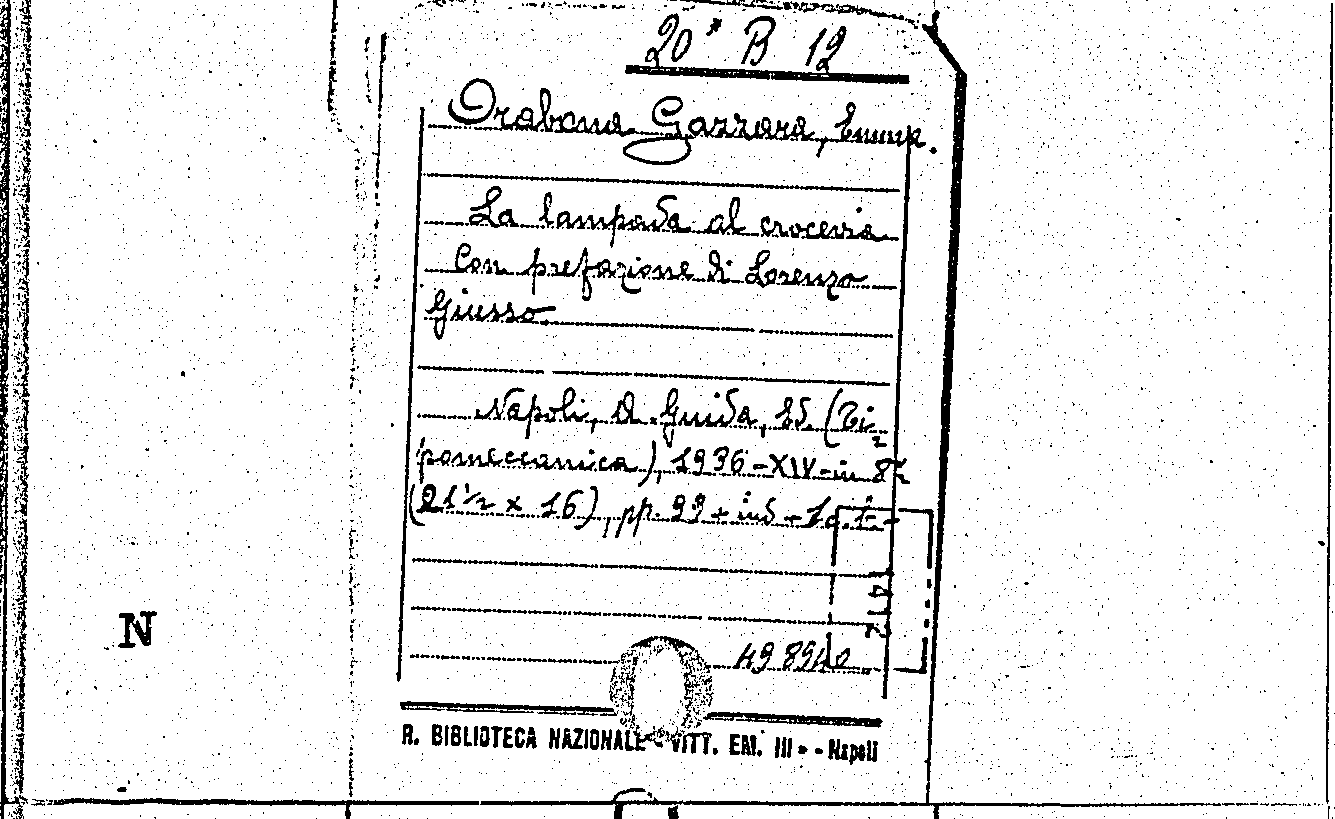 20* B 12
Orabona Gazzara, Emma.
La lampada al crocevia
Con prefazione di Lorenzo
Giusso.
Napoli, A. Guida, Ed. (Ti=
pomeccanica), 1936-XIV-in 8º
(21 1/2 x 16), pp. 99 + ind
1412
N
R. BIBLIOTECA NAZIONALE - VITT. EM. III - Napoli